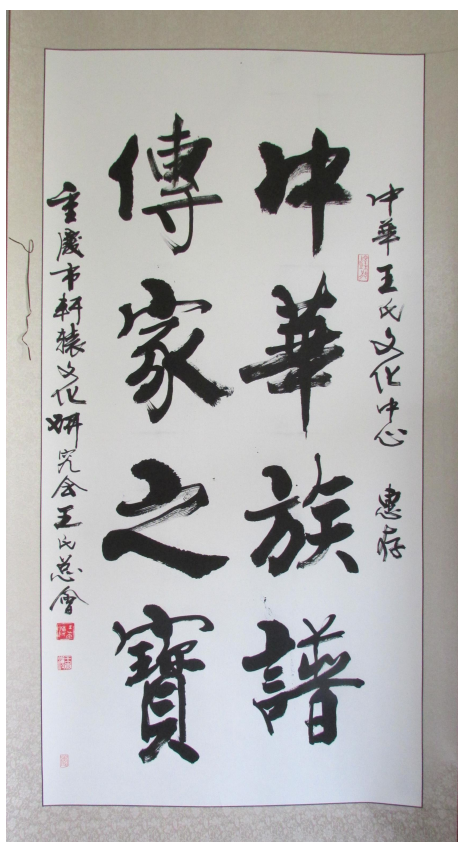 中華王氏文化中心 惠存
中華族譜
傳家之寶
重慶市軒轅文化研究会王氏总會